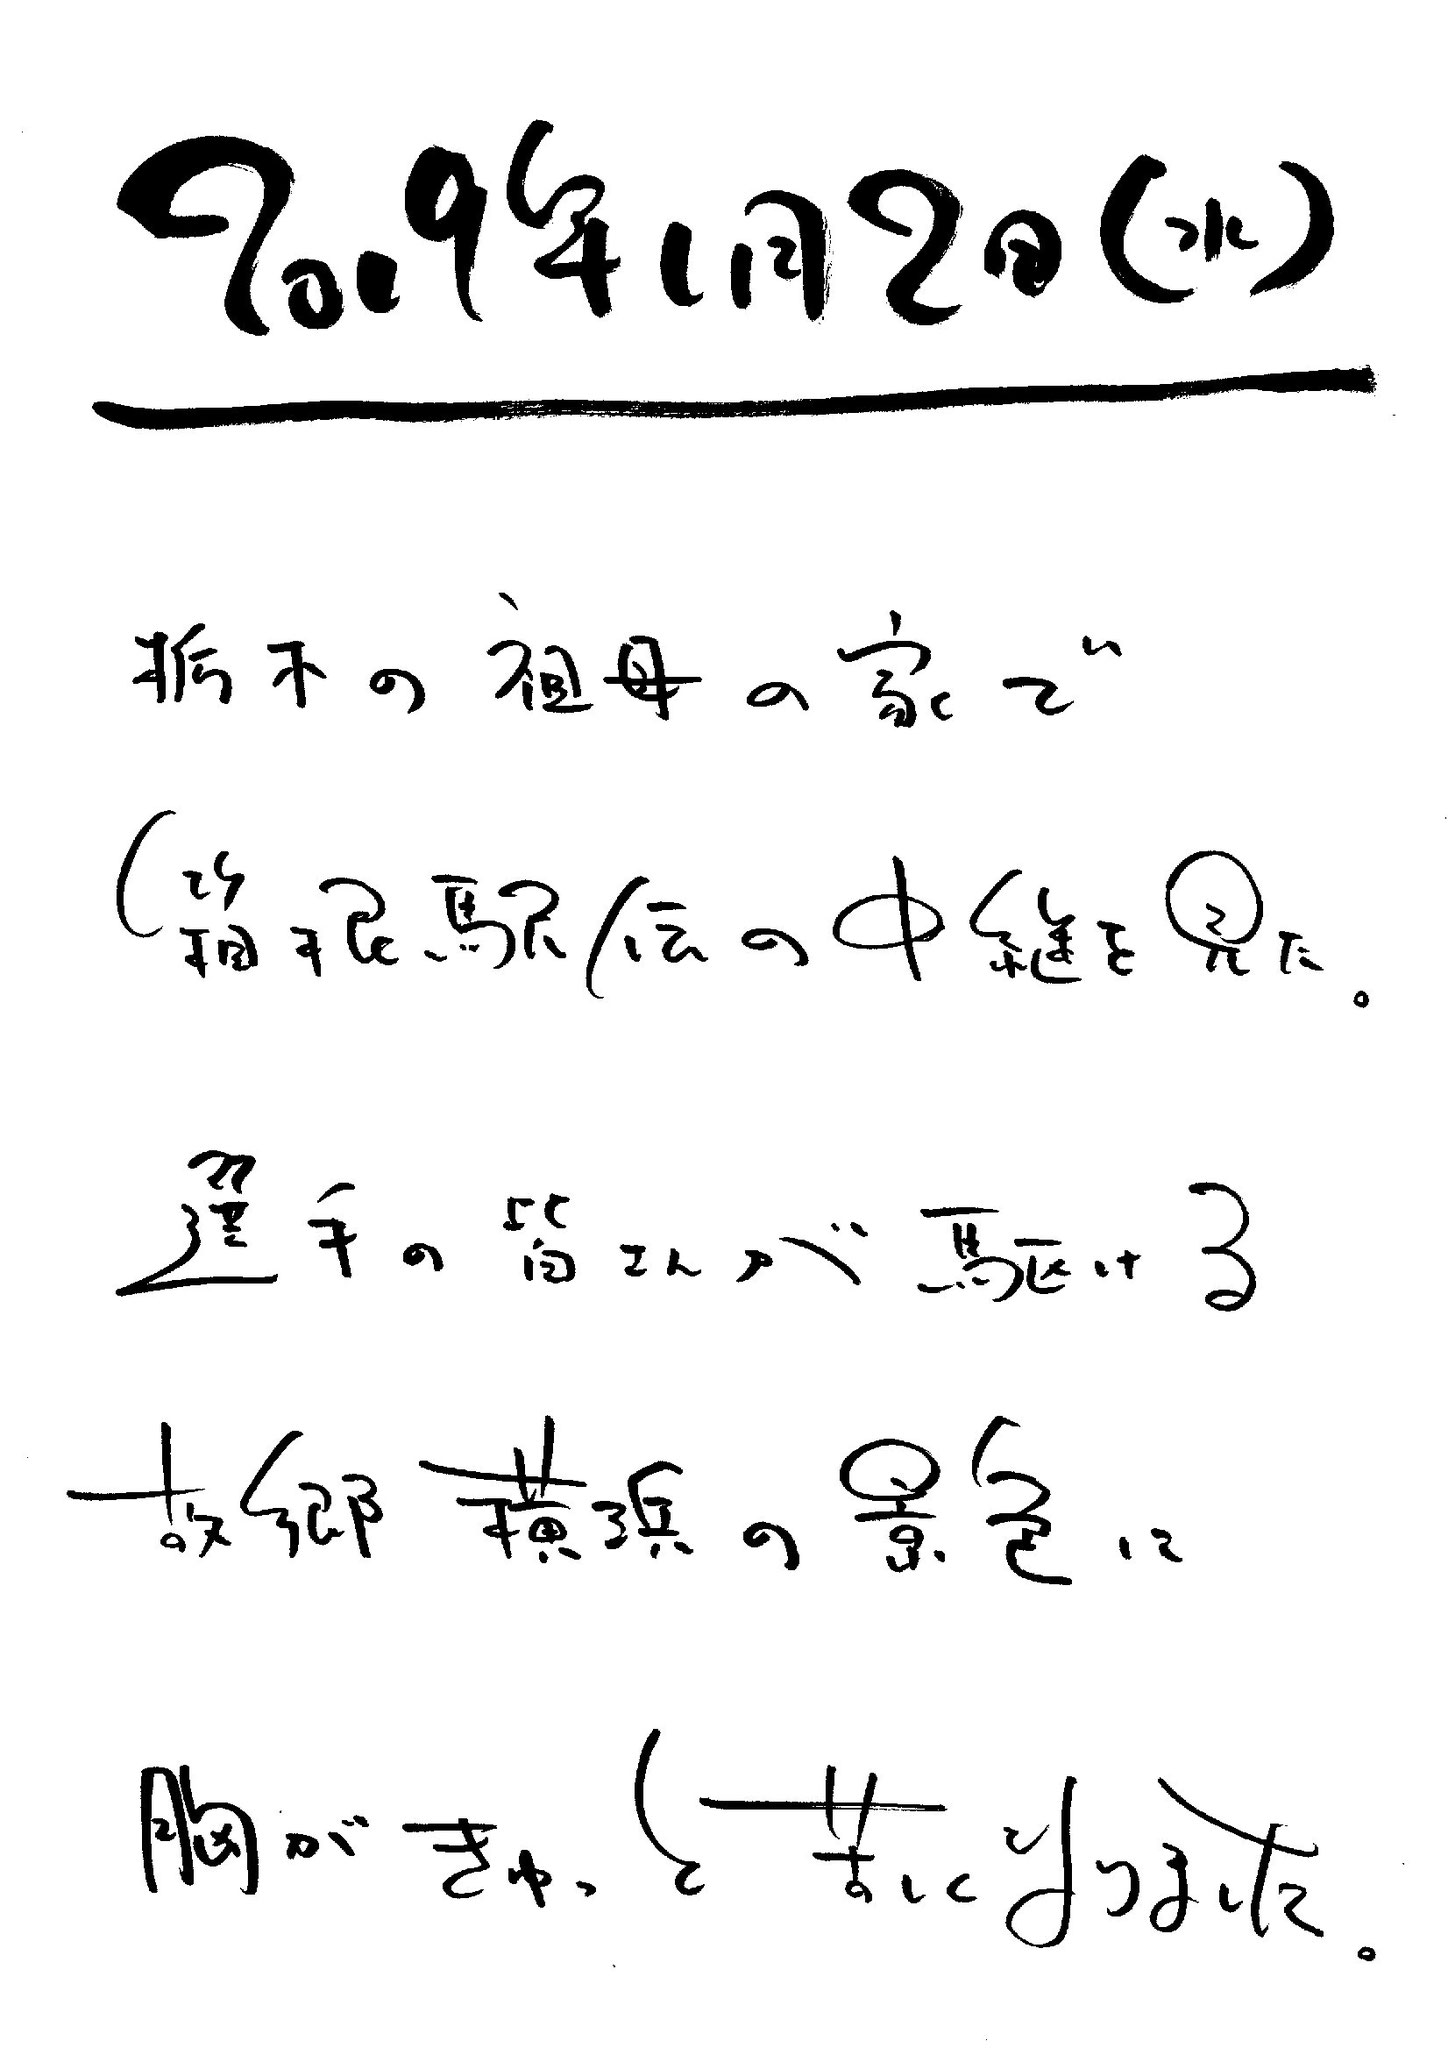 2019年1月2日(水)
栃木の祖母の家で
箱根駅伝の中継を見た。
選手の皆さんが駆ける
故郷横浜の景色に
胸がきゅっと苦しくなりました。